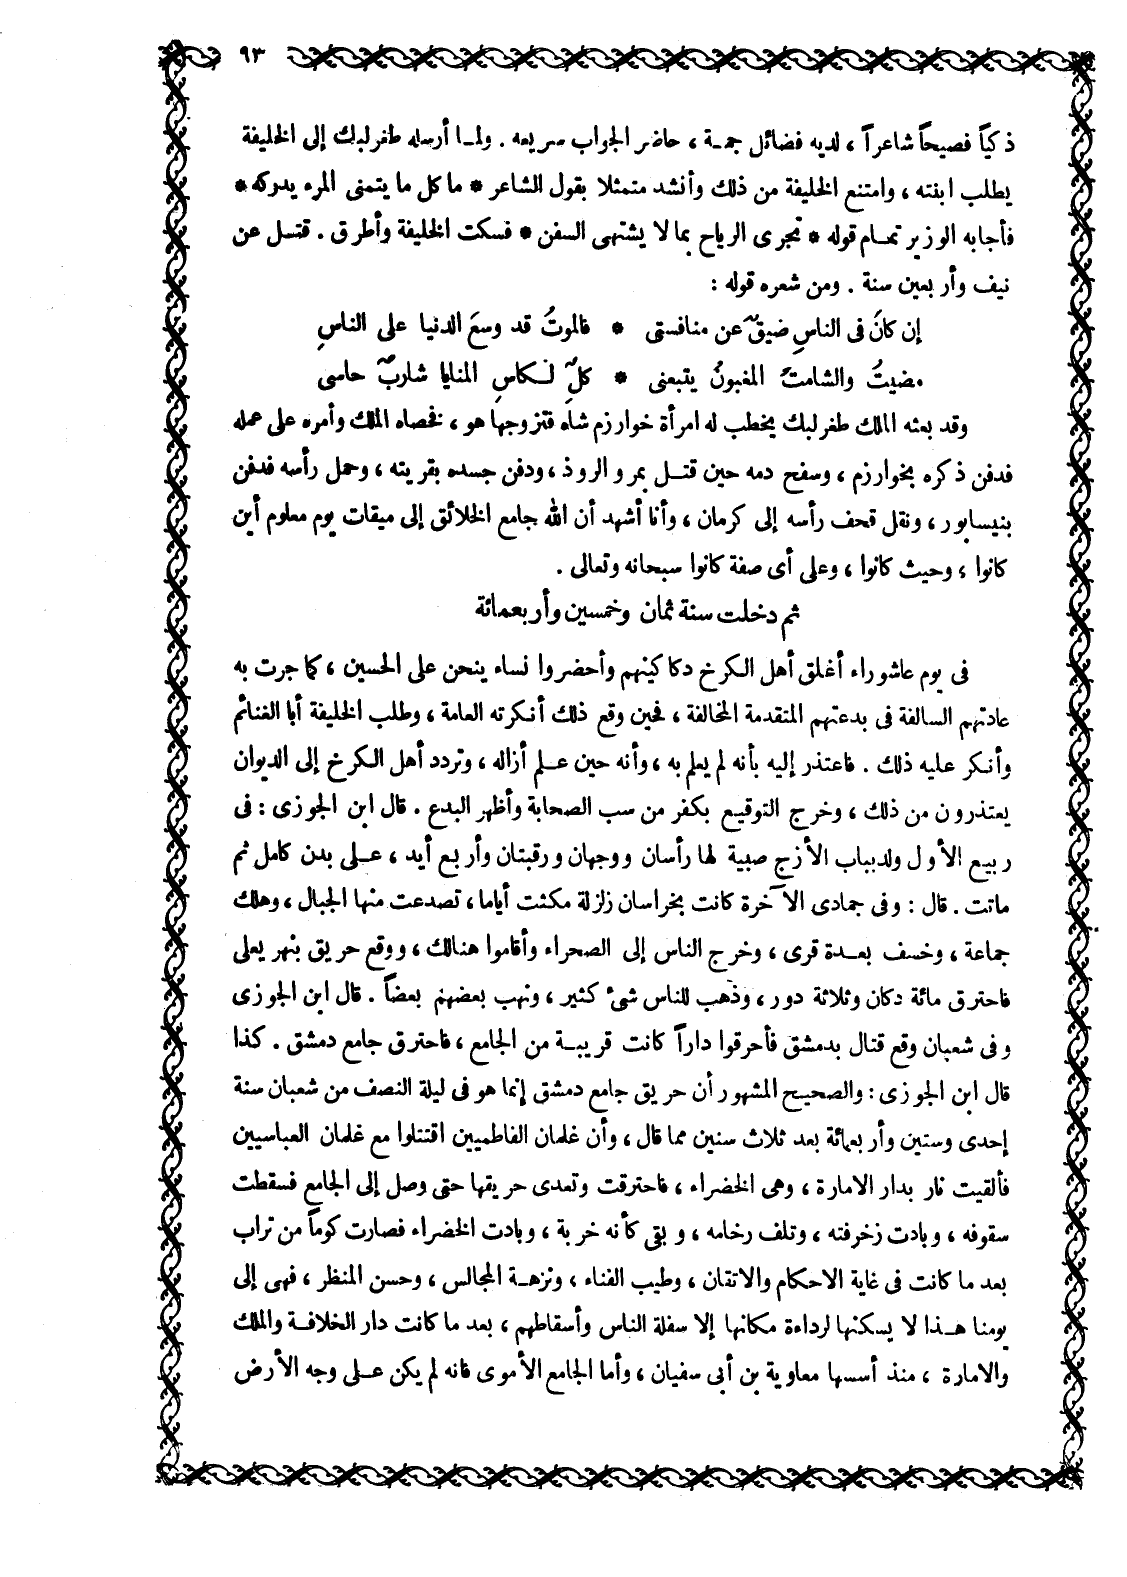 ٩٣
ذكياً فصيحاً شاعراً ، لديه فضائل جمة ، حاضر الجواب سريعه . ولما أرسله طغرلبك إلى الخليفة
يطلب ابنته ، وامتنع الخليفة من ذلك وأنشد متمثلا بقول الشاعر * ما كل ما يتمنى المرء يدركه *
فأجابه الوزير تمام قوله * تجرى الرياح بما لا يشتهى السفن * فسكت الخليفة وأطرق . قتل عن
نيف وأربعين سنة . ومن شعره قوله :
إن كانَ فى الناسِ ضيقٌ عن منافستى * فالموتُ قد وسعَ الدنيا على الناسِ
مضيتُ والشامتُ المغبونُ يتبعنى * كلٌ لكاسِ المنايا شاربٌ حاسى
وقد بعثه الملك طغرلبك يخطب له امرأة خوارزم شاه فتزوجها هو ، فخصاه الملك وأمره على عمله
فدفن ذكره بخوارزم ، وسفح دمه حين قتل بمرو الروذ ، ودفن جسده بقريته ، وحمل رأسه فدفن
بنيسابور ، ونقل قحف رأسه إلى كرمان ، وأنا أشهد أن الله جامع الخلائق إلى ميقات يوم معلوم أين
كانوا ، وحيث كانوا ، وعلى أى صفة كانوا سبحانه وتعالى .
ثم دخلت سنة ثمان وخمسين وأربعمائة
فى يوم عاشوراء أغلق أهل الكرخ دكاكينهم وأحضروا نساء ينحن على الحسين ، كما جرت به
عادتهم السالفة فى بدعتهم المتقدمة المخالفة ، فحين وقع ذلك أنكرته العامة ، وطلب الخليفة أبا الغنائم
وأنكر عليه ذلك . فاعتذر إليه بأنه لم يعلم به ، وأنه حين علم أزاله ، وتردد أهل الكرخ إلى الديوان
يعتذرون من ذلك ، وخرج التوقيع بكفر من سب الصحابة وأظهر البدع . قال ابن الجوزى : فى
ربيع الأول ولد بباب الأزج صبية لها رأسان ووجهان ورقبتان وأربع أيد ، على بدن كامل ثم
ماتت . قال : وفى جمادى الآخرة كانت بخراسان زلزلة مكثت أياما ، تصدعت منها الجبال ، وهلك
جماعة ، وخسف بعدة قرى ، وخرج الناس إلى الصحراء وأقاموا هنالك ، ووقع حريق بنهر يعلى
فاحترق مائة دكان وثلاثة دور ، وذهب للناس شئ كثير ، ونهب بعضهم بعضاً . قال ابن الجوزى
وفى شعبان وقع قتال بدمشق فأحرقوا داراً كانت قريبة من الجامع ، فاحترق جامع دمشق . كذا
قال ابن الجوزى : والصحيح المشهور أن حريق جامع دمشق إنما هو فى ليلة النصف من شعبان سنة
إحدى وستين وأربعمائة بعد ثلاث سنين مما قال ، وأن غلمان الفاطميين اقتتلوا مع غلمان العباسيين
فألقيت نار بدار الامارة ، وهى الخضراء ، فاحترقت وتعدى حريقها حتى وصل إلى الجامع فسقطت
سقوفه ، وبادت زخرفته ، وتلف رخامه ، وبقى كأنه خربة ، وبادت الخضراء فصارت كوماً من تراب
بعد ما كانت فى غاية الاحكام والاتقان ، وطيب الفناء ، ونزهة المجالس ، وحسن المنظر ، فهى إلى
يومنا هذا لا يسكنها لرداءة مكانها إلا سفلة الناس وأسقاطهم ، بعد ما كانت دار الخلافة والملك
والامارة ، منذ أسسها معاوية بن أبى سفيان ، وأما الجامع الأموى فانه لم يكن على وجه الأرض